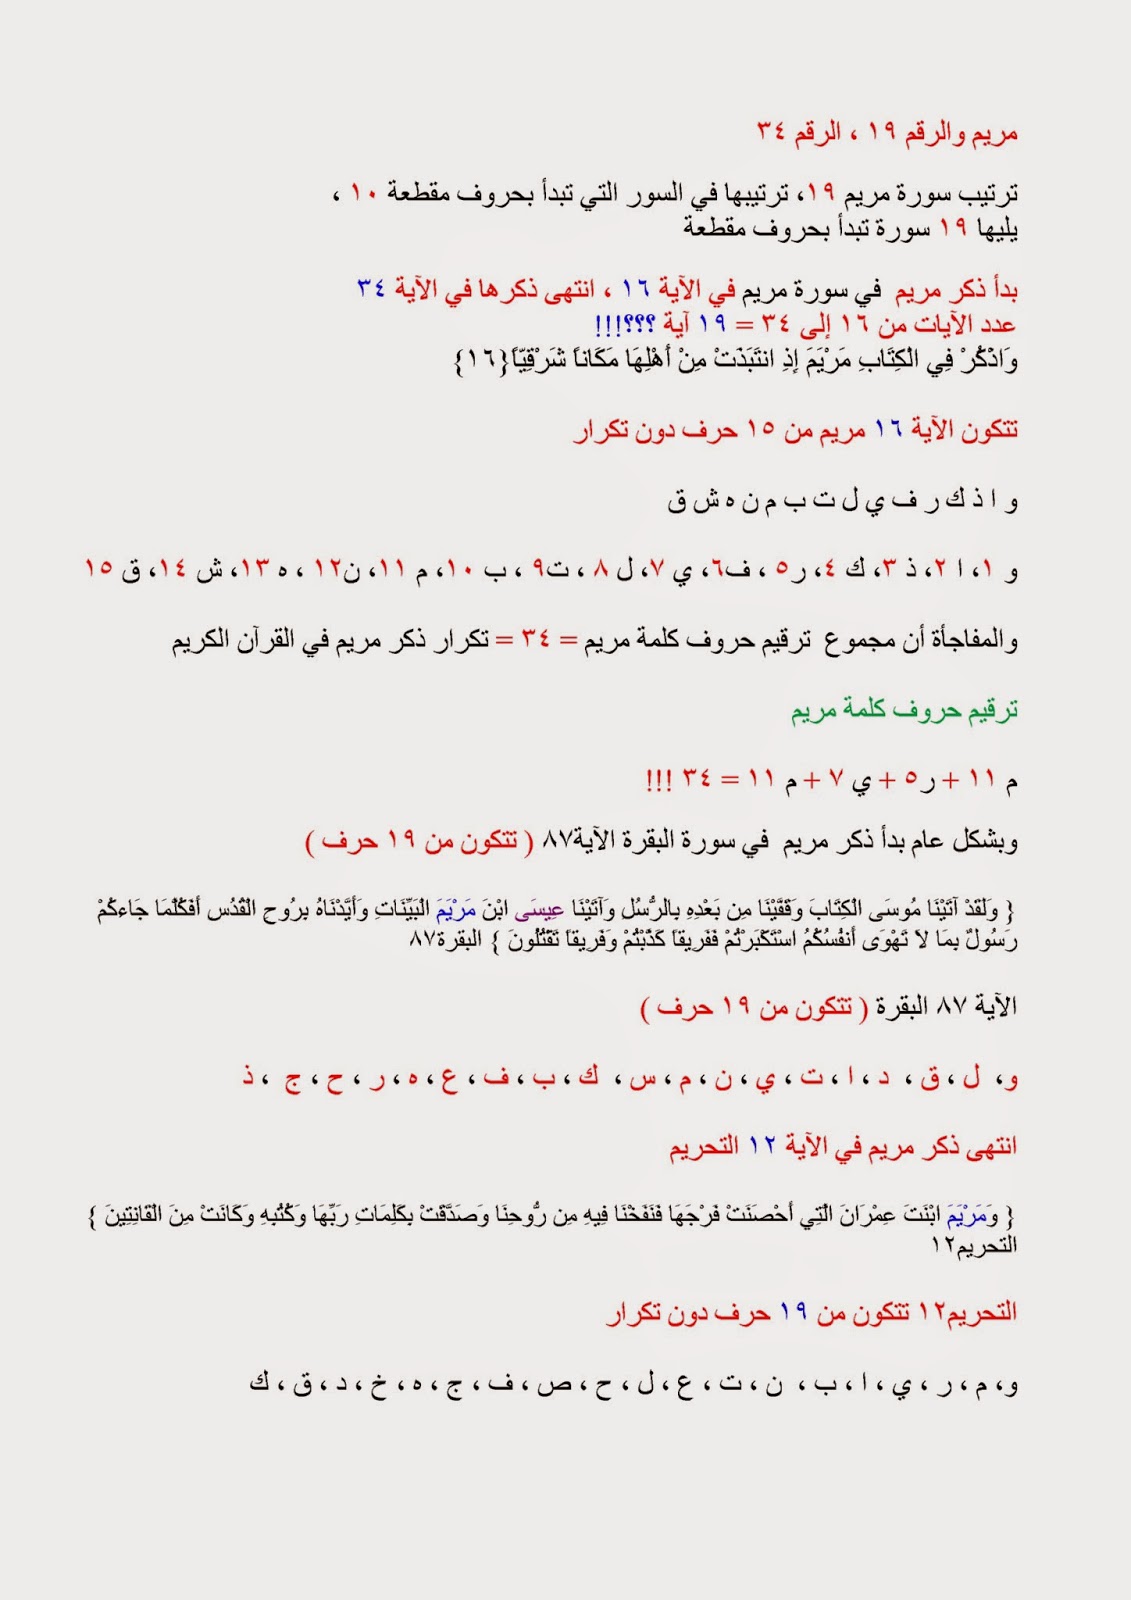 مريم والرقم ١٩ ، الرقم ٣٤
ترتيب سورة مريم ١٩، ترتيبها في السور التي تبدأ بحروف مقطعة ١٠ ،
يليها ١٩ سورة تبدأ بحروف مقطعة
بدأ ذكر مريم في سورة مريم في الآية ١٦ ، انتهى ذكرها في الآية ٣٤
عدد الآيات من ١٦ إلى ٣٤ = ١٩ آية ؟؟؟!!!
وَاذْكُرْ فِي الْكِتَابِ مَرْيَمَ إِذِ انتَبَذَتْ مِنْ أَهْلِهَا مَكَاناً شَرْقِيّاً{١٦}
تتكون الآية ١٦ مريم من ١٥ حرف دون تكرار
و ا ذ ك ر ف ي ل ت ب م ن ه ش ق
و ١، ا ٢، ذ ٣، ك ٤، ر٥ ، ف٦، ي ٧، ل ٨ ، ت٩ ، ب ١٠، م ١١، ن١٢ ، ه ١٣، ش ١٤، ق ١٥
والمفاجأة أن مجموع ترقيم حروف كلمة مريم = ٣٤ = تكرار ذكر مريم في القرآن الكريم
ترقيم حروف كلمة مريم
م ١١ + ر٥ + ي ٧ + م ١١ = ٣٤ !!!
وبشكل عام بدأ ذكر مريم في سورة البقرة الآية٨٧ ( تتكون من ١٩ حرف )
{ وَلَقَدْ آتَيْنَا مُوسَى الْكِتَابَ وَقَفَّيْنَا مِن بَعْدِهِ بِالرُّسُلِ وَآتَيْنَا عِيسَى ابْنَ مَرْيَمَ الْبَيِّنَاتِ وَأَيَّدْنَاهُ بِرُوحِ الْقُدُسِ أَفَكُلَّمَا جَاءكُمْ
رَسُولٌ بِمَا لاَ تَهْوَى أَنفُسُكُمُ اسْتَكْبَرْتُمْ فَفَرِيقاً كَذَّبْتُمْ وَفَرِيقاً تَقْتُلُونَ } البقرة٨٧
الآية ٨٧ البقرة ( تتكون من ١٩ حرف )
و، ل ، ق ، د ، ا ، ت ، ي ، ن ، م ، س ، ك ، ب ، ف ، ع ، ه ، ر ، ح ، ج ، ذ
انتهى ذكر مريم في الآية ١٢ التحريم
{ وَمَرْيَمَ ابْنَتَ عِمْرَانَ الَّتِي أَحْصَنَتْ فَرْجَهَا فَنَفَخْنَا فِيهِ مِن رُّوحِنَا وَصَدَّقَتْ بِكَلِمَاتِ رَبِّهَا وَكُتُبِهِ وَكَانَتْ مِنَ الْقَانِتِينَ }
التحريم١٢
التحريم١٢ تتكون من ١٩ حرف دون تكرار
و، م ، ر ، ي ، ا ، ب ، ن ، ت ، ع ، ل ، ح ، ص ، ف ، ج ، ه ، خ ، د ، ق ، ك